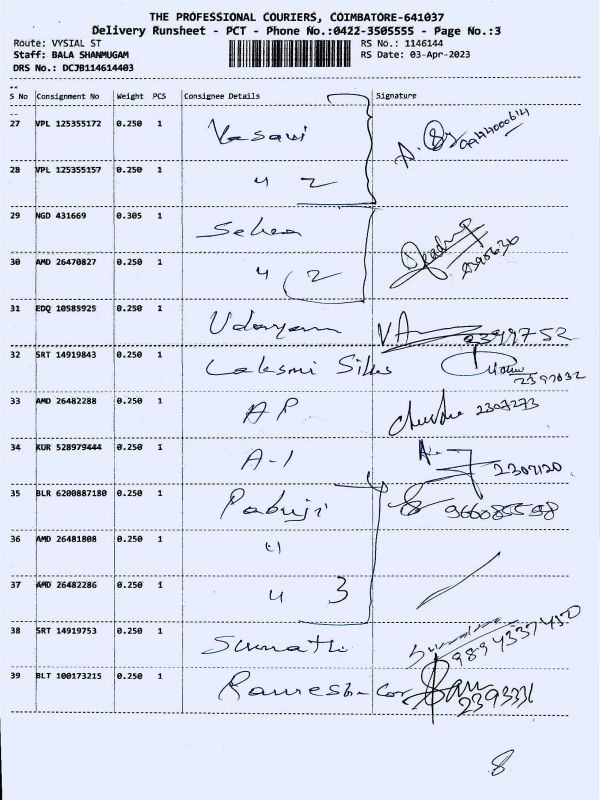 THE PROFESSIONAL COURIERS, COIMBATORE-641037
Delivery Runsheet - PCT - Phone No.:0422-3505555 - Page No.:3
Route: VYSIAL ST RS No.: 1146144
Staff: BALA SHANMUGAM RS Date: 03-Apr-2023
DRS No.: DCJB114614403
S No Consignment No Weight PCS Consignee Details Signature
27 VPL 125355172 0.250 1 Vasavi
28 VPL 125355157 0.250 1 " 2
29 NGD 431669 0.305 1
30 AMD 26470827 0.250 1 " 2
31 EDQ 10585925 0.250 1 Udayam 2399752
32 SRT 14919843 0.250 1 Laksmi Silks 2397032
33 AMD 26482288 0.250 1 A P 2307273
34 KUR 528979444 0.250 1 A-1 2307120
35 BLR 6200887180 0.250 1 Pabuji 9660855598
36 AMD 26481808 0.250 1 "
37 AMD 26482286 0.250 1 " 3
38 SRT 14919753 0.250 1 Sumathi 9894337450
39 BLT 100173215 0.250 1 Ramesh - Cor 2393331
8